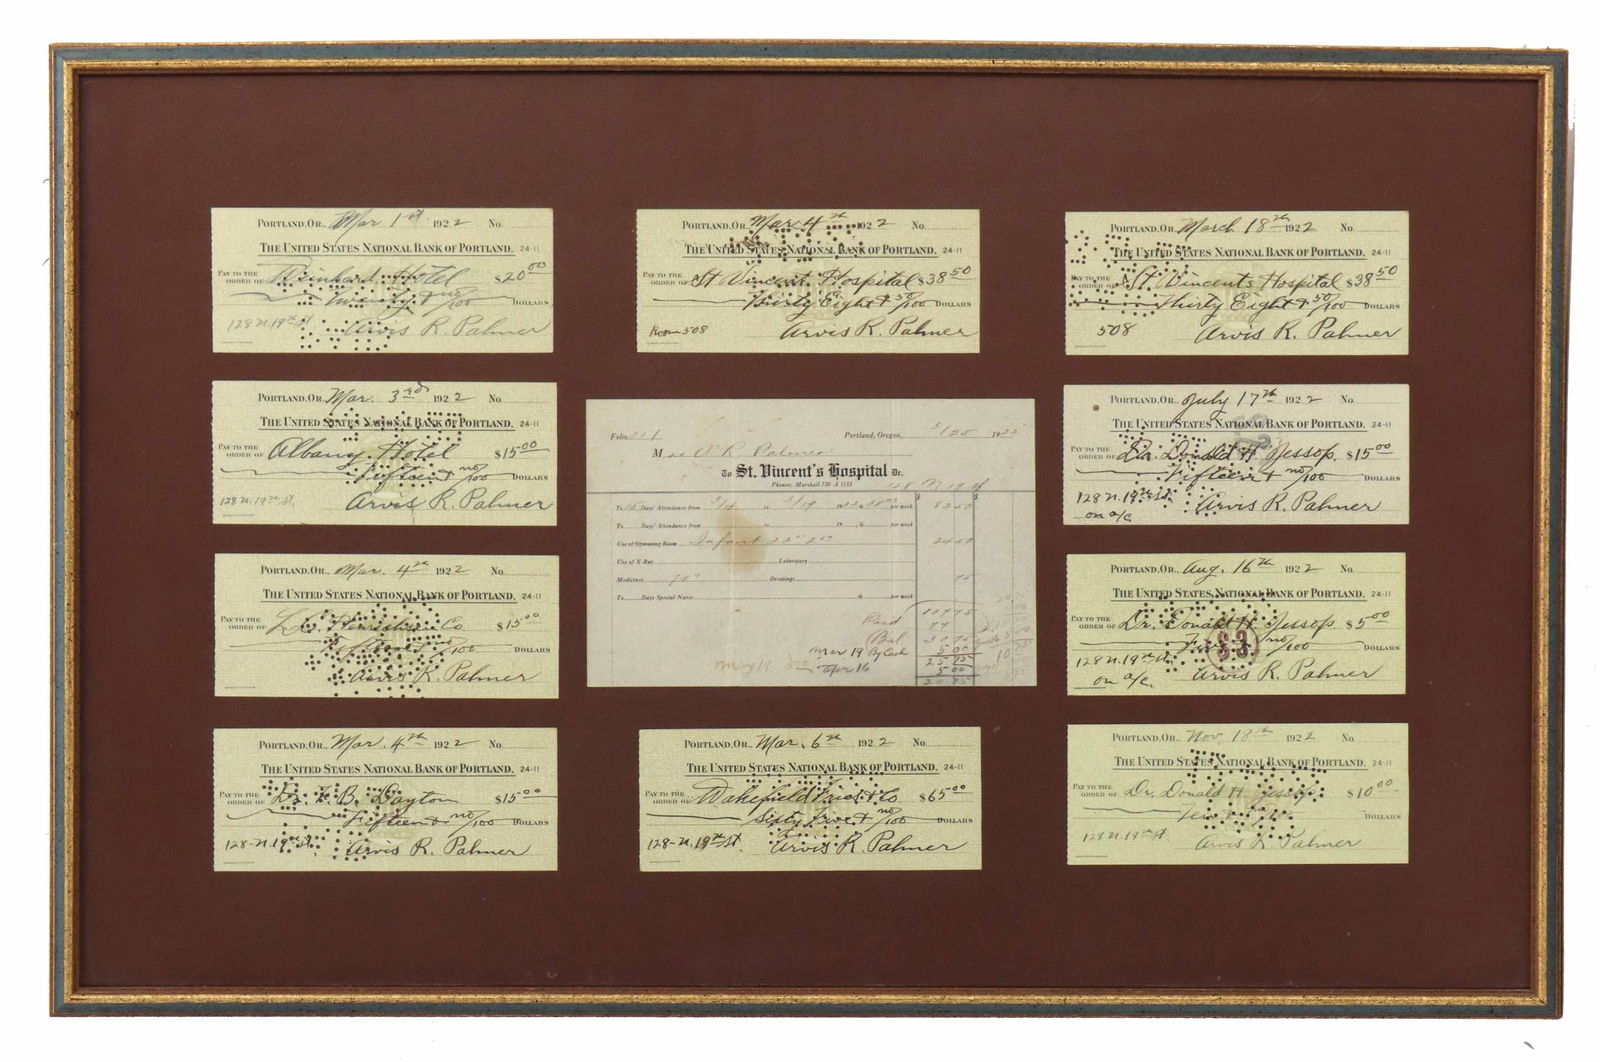 PORTLAND, OR. Mar 1st 1922 No.
THE UNITED STATES NATIONAL BANK OF PORTLAND. 24-11
PAY TO THE ORDER OF Hotel $20 00
Twenty & no/100 DOLLARS
128 N. 19th St Arvis R. Palmer
PORTLAND, OR. Mar. 3rd 1922 No.
THE UNITED STATES NATIONAL BANK OF PORTLAND. 24-11
PAY TO THE ORDER OF Albany Hotel $15.00
Fifteen & no/100 DOLLARS
128 N. 19th St. Arvis R. Palmer
PORTLAND, OR. Mar. 4th 1922 No.
THE UNITED STATES NATIONAL BANK OF PORTLAND. 24-11
PAY TO THE ORDER OF Co. $15.00
Fifteen & no/100 DOLLARS
Arvis R. Palmer
PORTLAND, OR. Mar. 4th 1922 No.
THE UNITED STATES NATIONAL BANK OF PORTLAND. 24-11
PAY TO THE ORDER OF Dr. B. Dayton $15.00
Fifteen & no/100 DOLLARS
128-N. 19th St. Arvis R. Palmer
PORTLAND, OR. Mar. 4th 1922 No.
THE UNITED STATES NATIONAL BANK OF PORTLAND. 24-11
PAY TO THE ORDER OF St Vincent Hospital $38 50
Thirty Eight & 50/100 DOLLARS
Room 508 Arvis R. Palmer
Folio
Portland, Oregon, 3/25 19
M A R Palmer
To St. Vincent's Hospital Dr.
Phones: Marshall
128 N. 19 St
To Days' Attendance from 3/4 to 3/19 19 @ per week 82 50
To Days' Attendance from to 19 @ per week
Use of Operating Room Infant 24 50
Use of X-Ray Laboratory
Medicines 75 Dressings 75
To Days Special Nurse @ per week
107 75
Paid 77
Bal 30 75
Mar 19 By Cash 5 00
25 75
May 19 Apr 16 5 00
20 75
PORTLAND, OR. Mar. 6th 1922 No.
THE UNITED STATES NATIONAL BANK OF PORTLAND. 24-11
PAY TO THE ORDER OF Wakefield Fries & Co $65.00
Sixty Five & no/100 DOLLARS
128-N. 19th St. Arvis R. Palmer
PORTLAND, OR. March 18th 1922 No.
THE UNITED STATES NATIONAL BANK OF PORTLAND. 24-11
PAY TO THE ORDER OF St. Vincents Hospital $38 50
Thirty Eight & 50/100 DOLLARS
508 Arvis R. Palmer
PORTLAND, OR. July 17th 1922 No.
THE UNITED STATES NATIONAL BANK OF PORTLAND. 24-11
PAY TO THE ORDER OF Dr. Donald H. Jessop. $15.00
Fifteen & no/100 DOLLARS
128 N. 19th St.
on a/c Arvis R. Palmer
PORTLAND, OR. Aug. 16th 1922 No.
THE UNITED STATES NATIONAL BANK OF PORTLAND. 24-11
PAY TO THE ORDER OF Dr. Donald H. Jessop. $5.00
Five & no/100 DOLLARS
128 N. 19th St.
on a/c. Arvis R. Palmer
PORTLAND, OR. Nov. 18th 1922 No.
THE UNITED STATES NATIONAL BANK OF PORTLAND. 24-11
PAY TO THE ORDER OF Dr. Donald H. Jessop $10 00
Ten & no/100 DOLLARS
128 N. 19th St. Arvis R Palmer